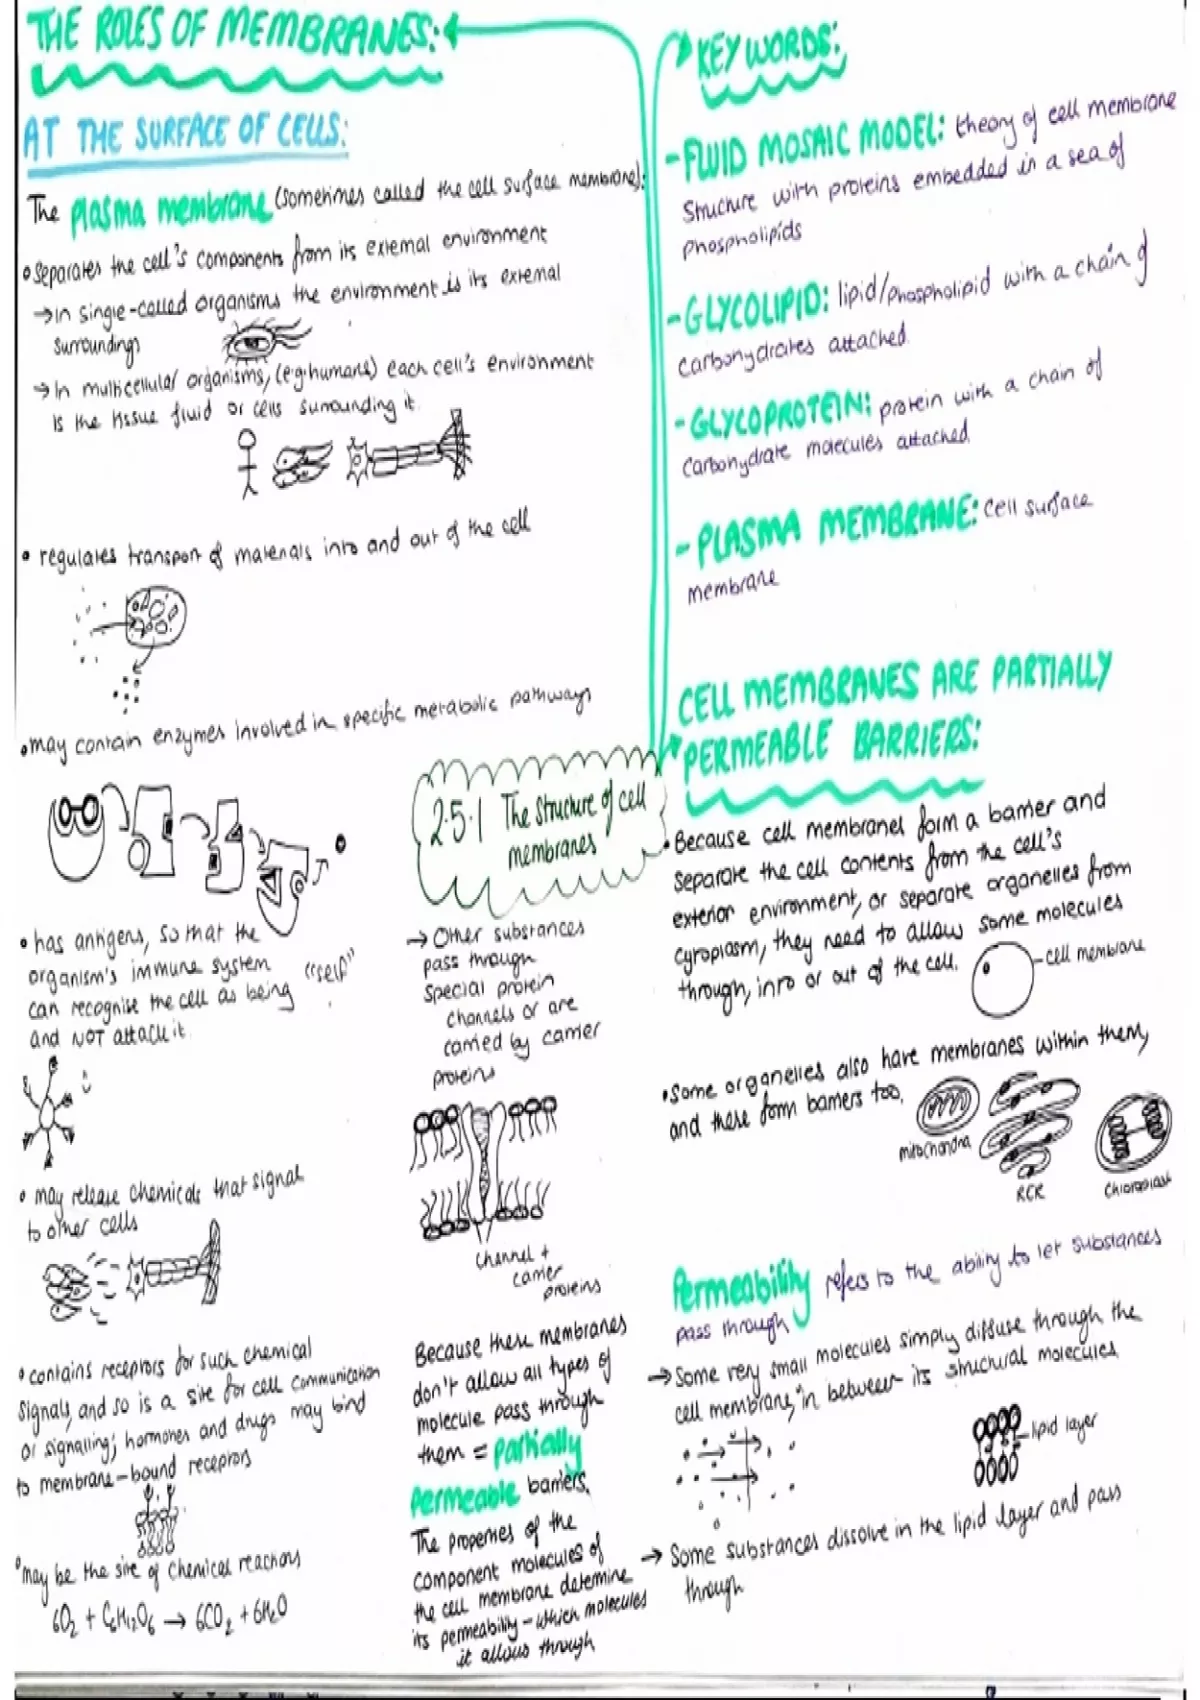 THE ROLES OF MEMBRANES:
AT THE SURFACE OF CELLS:
The plasma membrane (sometimes called the cell surface membrane):
• separates the cell's components from its external environment
→ In single-celled organisms the environment is its external
surroundings
→ In multicellular organisms, (e.g humans) each cell's environment
is the tissue fluid or cells surrounding it.
• regulates transport of materials into and out of the cell
• may contain enzymes involved in specific metabolic pathways
• has antigens, so that the
organism's immune system
can recognise the cell as being "self"
and NOT attack it.
• may release chemicals that signal
to other cells
• contains receptors for such chemical
signals, and so is a site for cell communication
or signalling; hormones and drugs may bind
to membrane-bound receptors
• may be the site of chemical reactions
6O₂ + C₆H₁₂O₆ → 6CO₂ + 6H₂O
2.5.1 The structure of cell
membranes
→ Other substances
pass through
special protein
channels or are
carried by carrier
proteins
Channel +
carrier
proteins
Because these membranes
don't allow all types of
molecule pass through
them = partially
permeable barriers.
The properties of the
component molecules of
the cell membrane determine
its permeability - which molecules
it allows through
KEY WORDS:
- FLUID MOSAIC MODEL: theory of cell membrane
structure with proteins embedded in a sea of
phospholipids
- GLYCOLIPID: lipid/phospholipid with a chain of
carbohydrates attached.
- GLYCOPROTEIN: protein with a chain of
carbohydrate molecules attached.
- PLASMA MEMBRANE: cell surface
membrane
CELL MEMBRANES ARE PARTIALLY
PERMEABLE BARRIERS:
• Because cell membranes form a barrier and
separate the cell contents from the cell's
exterior environment, or separate organelles from
cytoplasm, they need to allow some molecules
through, into or out of the cell.
cell membrane
• Some organelles also have membranes within them,
and these form barriers too.
mitochondria
RER
Chloroplast
Permeability refers to the ability to let substances
pass through
→ Some very small molecules simply diffuse through the
cell membrane, in between its structural molecules
lipid layer
→ Some substances dissolve in the lipid layer and pass
through